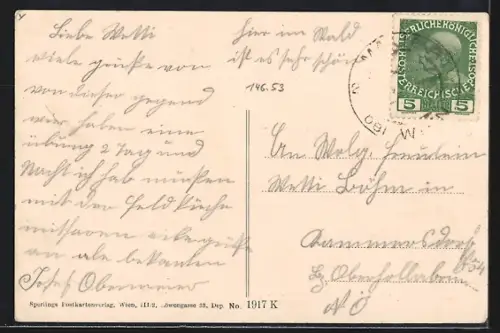 Liebe Wetti
viele grüße von
von dieser gegend
wier haben eine
übung 2 Tag und
Nacht ich hab müßen
mit der Feldküche
grüße
an ale bekanten
Josef Obermaier
hier im Wald
ist es sehr schön
146.53
KAISERLICHE KÖNIGLICHE
ÖSTERREICHISCHE POST
5 5
An Wolg. Freulein
Wetti Böhm in
Kammersdorf
Oberhollabrunn
N Ö
Sperlings Postkartenverlag, Wien, III/2, Löwengasse 38, Dep. No. 1917 K